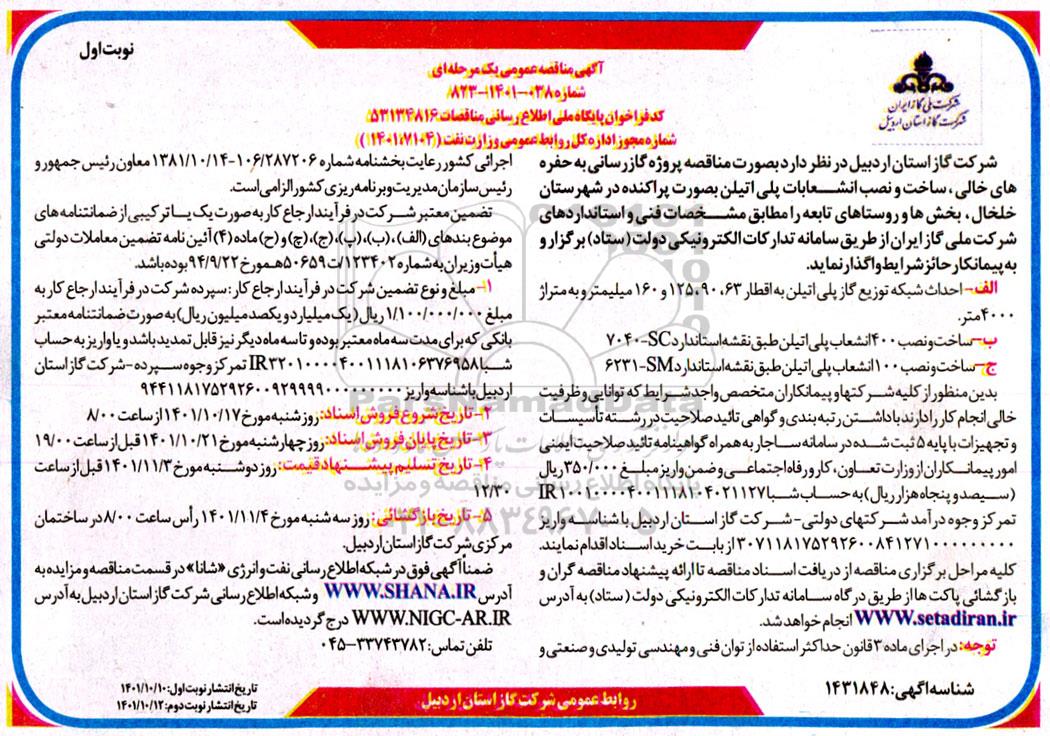 نوبت اول
شرکت ملی گاز ایران
شرکت گاز استان اردبیل
آگهی مناقصه عمومی یک مرحله‌ای
شماره ۰۳۸-۱۴۰۱-۸۲۳
کد فراخوان پایگاه ملی اطلاع رسانی مناقصات: ۵۳۱۳۴۸۱۶
شماره مجوز اداره کل روابط عمومی وزارت نفت (۱۴۰۱،۷۱۰۴)
شرکت گاز استان اردبیل در نظر دارد بصورت مناقصه پروژه گاز رسانی به حفره
های خالی ، ساخت و نصب انشعابات پلی اتیلن بصورت پراکنده در شهرستان
خلخال ، بخش ها و روستاهای تابعه را مطابق مشخصات فنی و استانداردهای
شرکت ملی گاز ایران از طریق سامانه تدارکات الکترونیکی دولت (ستاد) برگزار و
به پیمانکار حائز شرایط واگذار نماید.
الف- احداث شبکه توزیع گاز پلی اتیلن به اقطار ۶۳، ۹۰، ۱۲۵ و ۱۶۰ میلیمتر و به متراژ
۴۰۰۰ متر.
ب- ساخت و نصب ۴۰۰ انشعاب پلی اتیلن طبق نقشه استاندارد SC-۷۰۴۰
ج- ساخت و نصب ۱۰۰ انشعاب پلی اتیلن طبق نقشه استاندارد SM-۶۲۳۱
بدین منظور از کلیه شرکتها و پیمانکاران متخصص واجد شرایط که توانایی و ظرفیت
خالی انجام کار را دارند با داشتن رتبه بندی و گواهی تائید صلاحیت در رشته تأسیسات
و تجهیزات با پایه ۵ ثبت شده در سامانه ساجار به همراه گواهینامه تائید صلاحیت ایمنی
امور پیمانکاران از وزارت تعاون، کار و رفاه اجتماعی و ضمن واریز مبلغ ۳۵۰/۰۰۰ ریال
(سیصد و پنجاه هزار ریال) به حساب شبا IR۱۰۰۱۰۰۰۰۴۰۰۱۱۱۸۱۰۴۰۲۱۱۲۷
تمرکز وجوه درآمد شرکتهای دولتی- شرکت گاز استان اردبیل با شناسه واریز
۳۰۷۱۱۸۱۷۵۲۹۲۶۰۰۸۴۱۲۷۱۰۰۰۰۰۰۰۰۰۰ از بابت خرید اسناد اقدام نمایند.
کلیه مراحل برگزاری مناقصه از دریافت اسناد مناقصه تا ارائه پیشنهاد مناقصه گران و
بازگشائی پاکت ها از طریق درگاه سامانه تدارکات الکترونیکی دولت (ستاد) به آدرس
WWW.setadiran.ir انجام خواهد شد.
توجه: در اجرای ماده ۳ قانون حداکثر استفاده از توان فنی و مهندسی تولیدی و صنعتی و
اجرائی کشور رعایت بخشنامه شماره ۱۰۶/۲۸۷۲۰۶-۱۳۸۱/۱۰/۱۴ معاون رئیس جمهور و
رئیس سازمان مدیریت و برنامه ریزی کشور الزامی است.
تضمین معتبر شرکت در فرآیند ارجاع کار به صورت یک یا ترکیبی از ضمانتنامه های
موضوع بندهای (الف)، (ب)، (پ)، (ج)، (چ) و (ح) ماده (۴) آئین نامه تضمین معاملات دولتی
هیأت وزیران به شماره ۱۲۳۴۰۲/ت۵۰۶۵۹ هـ مورخ ۹۴/۹/۲۲ بوده باشد.
۱- مبلغ و نوع تضمین شرکت در فرآیند ارجاع کار : سپرده شرکت در فرآیند ارجاع کار به
مبلغ ۱/۱۰۰/۰۰۰/۰۰۰ ریال (یک میلیارد و یکصد میلیون ریال) به صورت ضمانتنامه معتبر
بانکی که برای مدت سه ماه معتبر بوده و تا سه ماه دیگر نیز قابل تمدید باشد و یا واریز به حساب
شبا IR۳۲۰۱۰۰۰۰۴۰۰۱۱۱۸۱۰۶۳۷۶۹۵۸ تمرکز وجوه سپرده - شرکت گاز استان
اردبیل با شناسه واریز ۹۴۴۱۱۸۱۷۵۲۹۲۶۰۰۹۲۹۹۹۹۰۰۰۰۰۰۰۰۰۰
۲- تاریخ شروع فروش اسناد: روز شنبه مورخ ۱۴۰۱/۱۰/۱۷ از ساعت ۸/۰۰
۳- تاریخ پایان فروش اسناد: روز چهارشنبه مورخ ۱۴۰۱/۱۰/۲۱ قبل از ساعت ۱۹/۰۰
۴- تاریخ تسلیم پیشنهاد قیمت: روز دوشنبه مورخ ۱۴۰۱/۱۱/۳ قبل از ساعت
۱۲/۳۰
۵- تاریخ بازگشائی: روز سه شنبه مورخ ۱۴۰۱/۱۱/۴ رأس ساعت ۸/۰۰ در ساختمان
مرکزی شرکت گاز استان اردبیل.
ضمناً آگهی فوق در شبکه اطلاع رسانی نفت و انرژی «شانا» در قسمت مناقصه و مزایده به
آدرس WWW.SHANA.IR و شبکه اطلاع رسانی شرکت گاز استان اردبیل به آدرس
WWW.NIGC-AR.IR درج گردیده است.
تلفن تماس: ۳۳۷۴۳۷۸۲-۰۴۵
شناسه آگهی: ۱۴۳۱۸۴۸
تاریخ انتشار نوبت اول: ۱۴۰۱/۱۰/۱۰
تاریخ انتشار نوبت دوم: ۱۴۰۱/۱۰/۱۲
روابط عمومی شرکت گاز استان اردبیل
ParsNamadData
پایگاه اطلاع رسانی مناقصه و مزایده